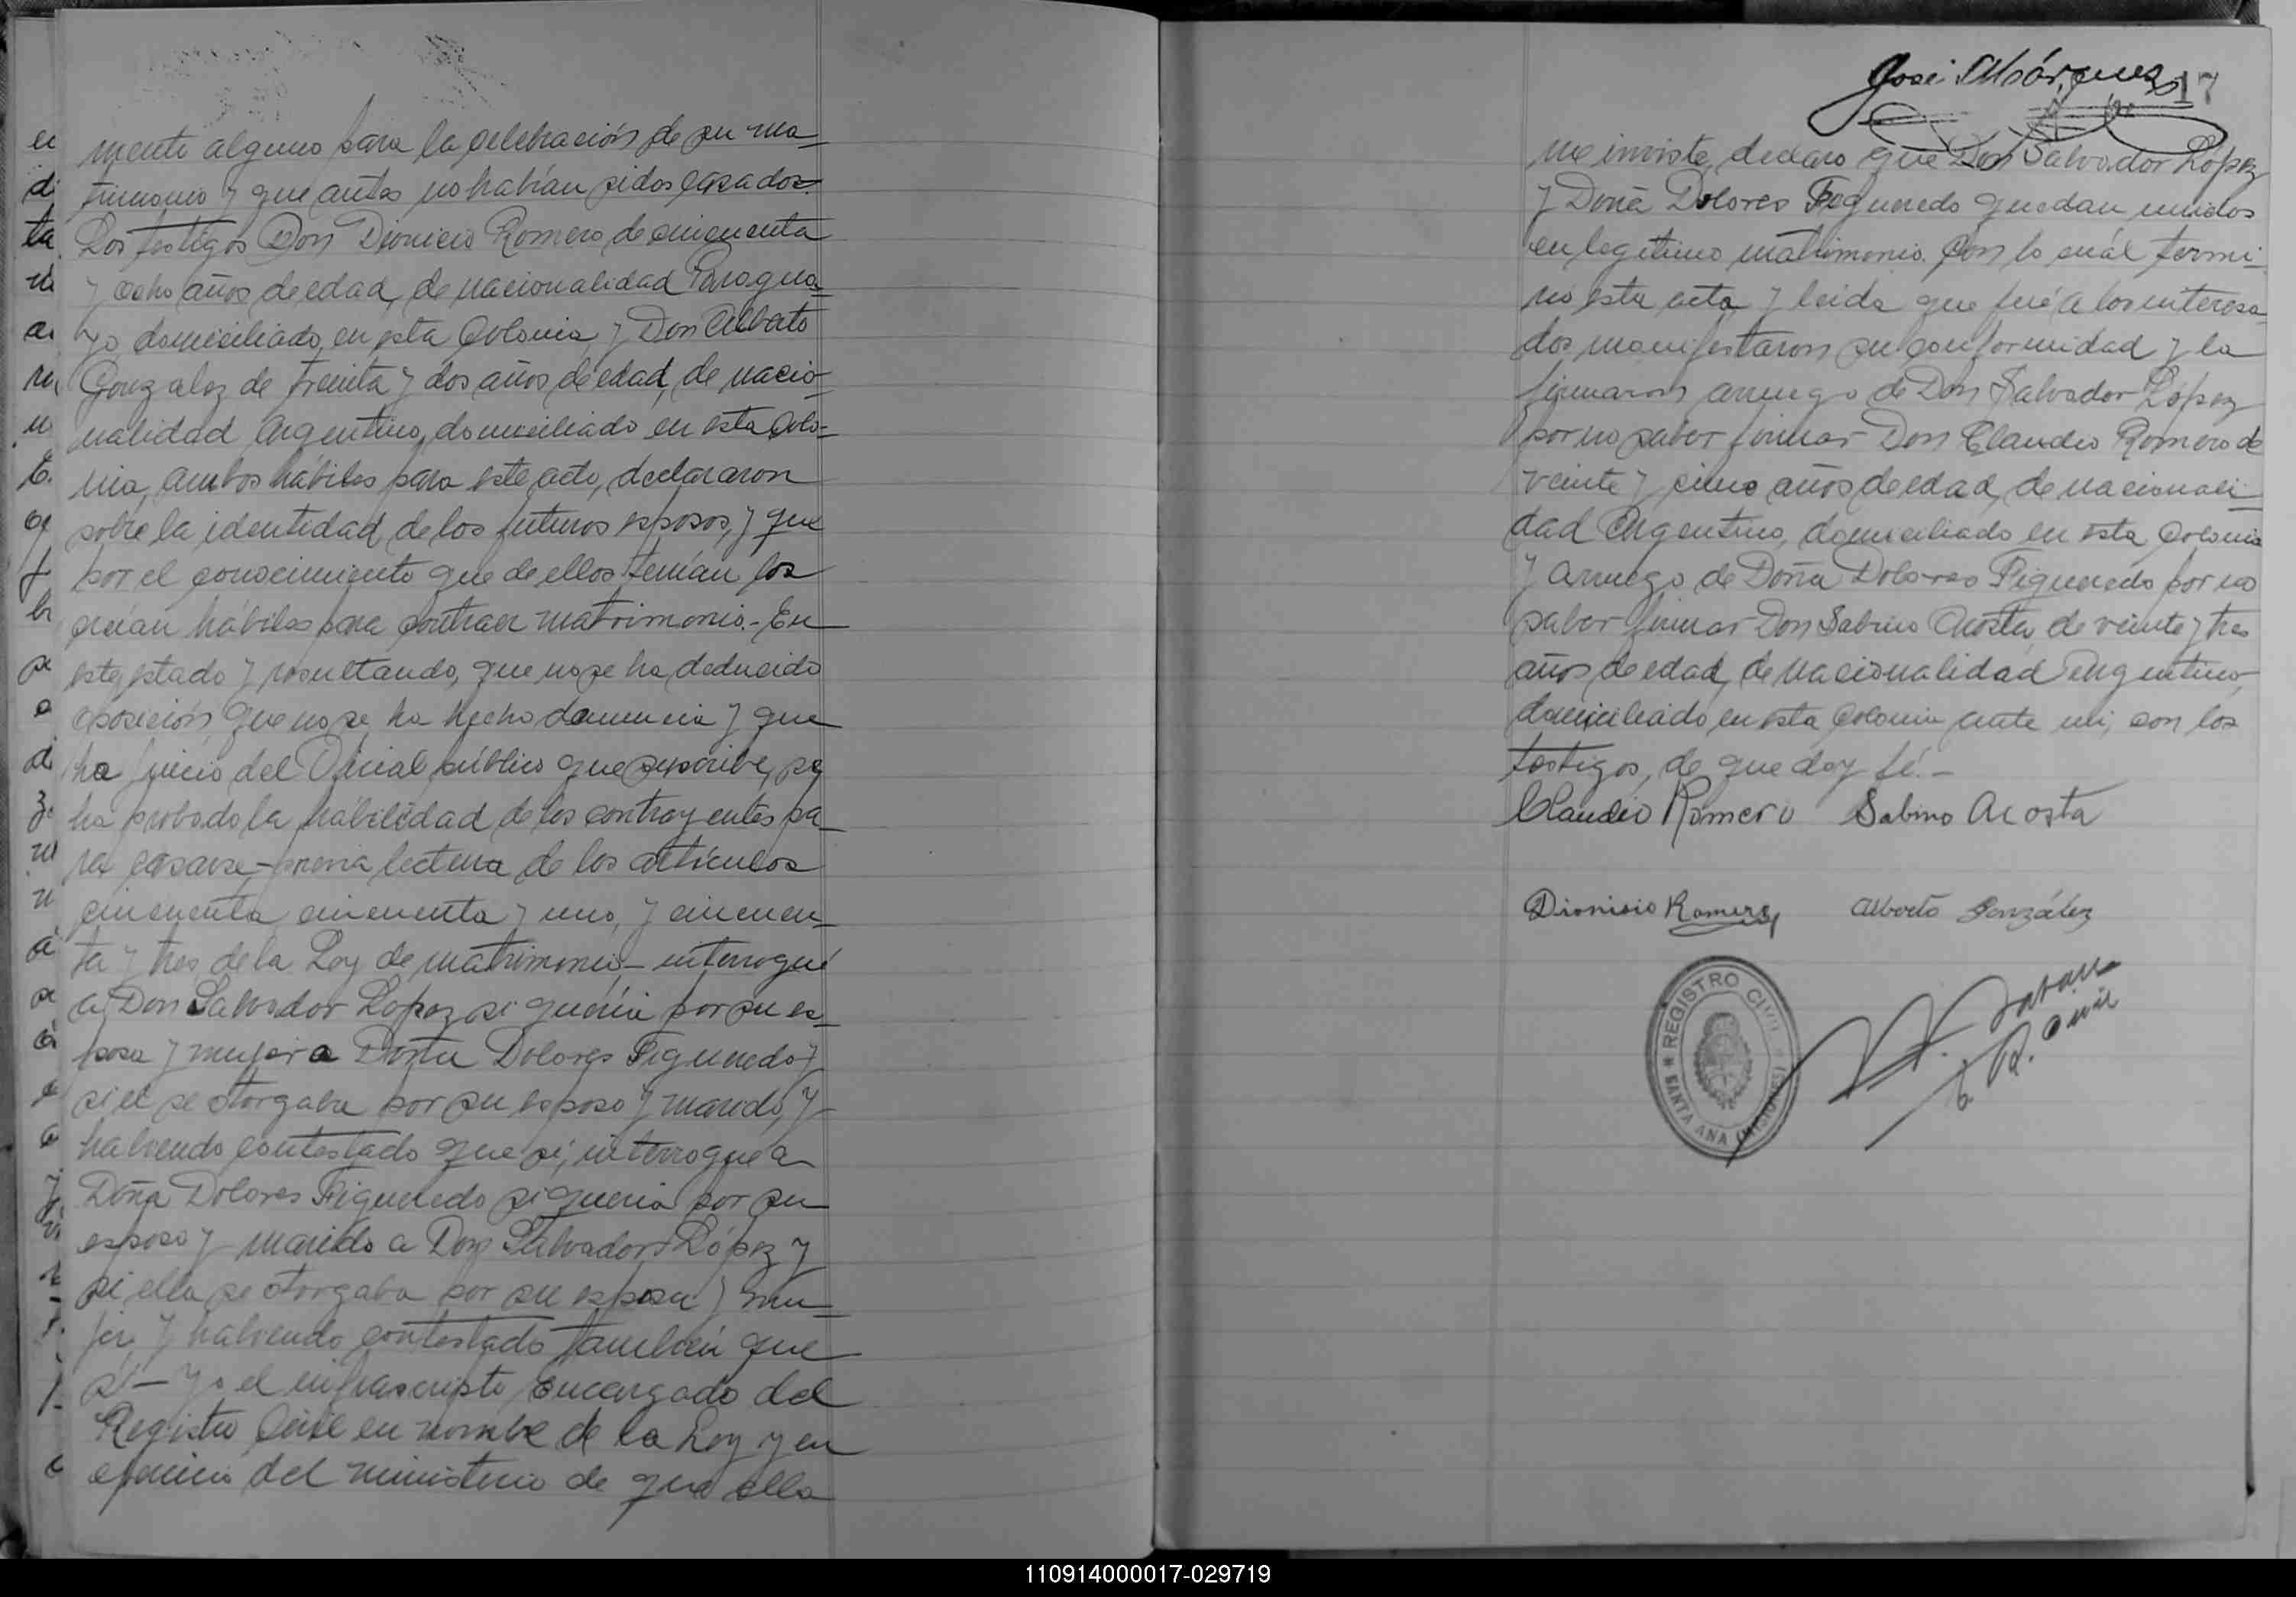 mento alguno para la celebración de su ma-
trimonio y que antes no habían sidos casados.
Los testigos Don Dionicio Romero, de cincuenta
y ocho años de edad, de nacionalidad Paragua-
yo domiciliado, en esta Colonia, y Don Alberto
Gonzalez de treinta y dos años de edad, de nacio-
nalidad Argentino, domiciliado en esta Colo-
nia, ambos hábiles para este acto, declararon
sobre la identidad de los futuros esposos, y que
por el conocimiento que de ellos tenían los
creían hábiles para contraer matrimonio.- En
este estado y resultando, que no se ha deducido
oposición, que no se ha hecho denuncia y que
ha juicio del Oficial público que suscribe, se
ha probado la habilidad de los contrayentes pa-
ra casarse,- previa lectura de los artículos
cincuenta, cincuenta y uno, y cincuen-
ta y tres de la Ley de matrimonio,- interrogué
a Don Salvador Lopez si quería por su es-
posa y mujer a Doña Dolores Figueredo y
si el se otorgaba por su esposo y marido, y
habiendo contestado que sí, interrogué a
Doña Dolores Figueredo si quería por su
esposo y marido a Don Salvador López y
si ella se otorgaba por su esposa y mu-
jer, y habiendo contestado también que
sí- Yo el infrascripto Encargado del
Registro Civil en nombre de la Ley y en
ejercicio del ministerio de que ella
José Márquez
17
me inviste, declaro que Don Salvador López
y Doña Dolores Figueredo quedan unidos
en legítimo matrimonio. Con lo cuál termi-
nó esta acta, y leída que fué a los interesa-
dos, manifestaron su conformidad y la
firmaron arruego de Don Salvador López
por no saber firmar Don Claudio Romero de
veinte y cinco años de edad, de nacionali-
dad Argentino, domiciliado en esta Colonia
y arruego de Doña Dolores Figueredo por no
saber firmar Don Sabino Acosta, de veinte y tres
años de edad, de nacionalidad Argentino,
domiciliado en esta Colonia ante mi, con los
testigos, de que doy fé.-
Claudio Romero Sabino Acosta
Dionisio Romero Alberto González
REGISTRO CIVIL
SANTA ANA (MISIONES)
E. R. Civil
110914000017-029719